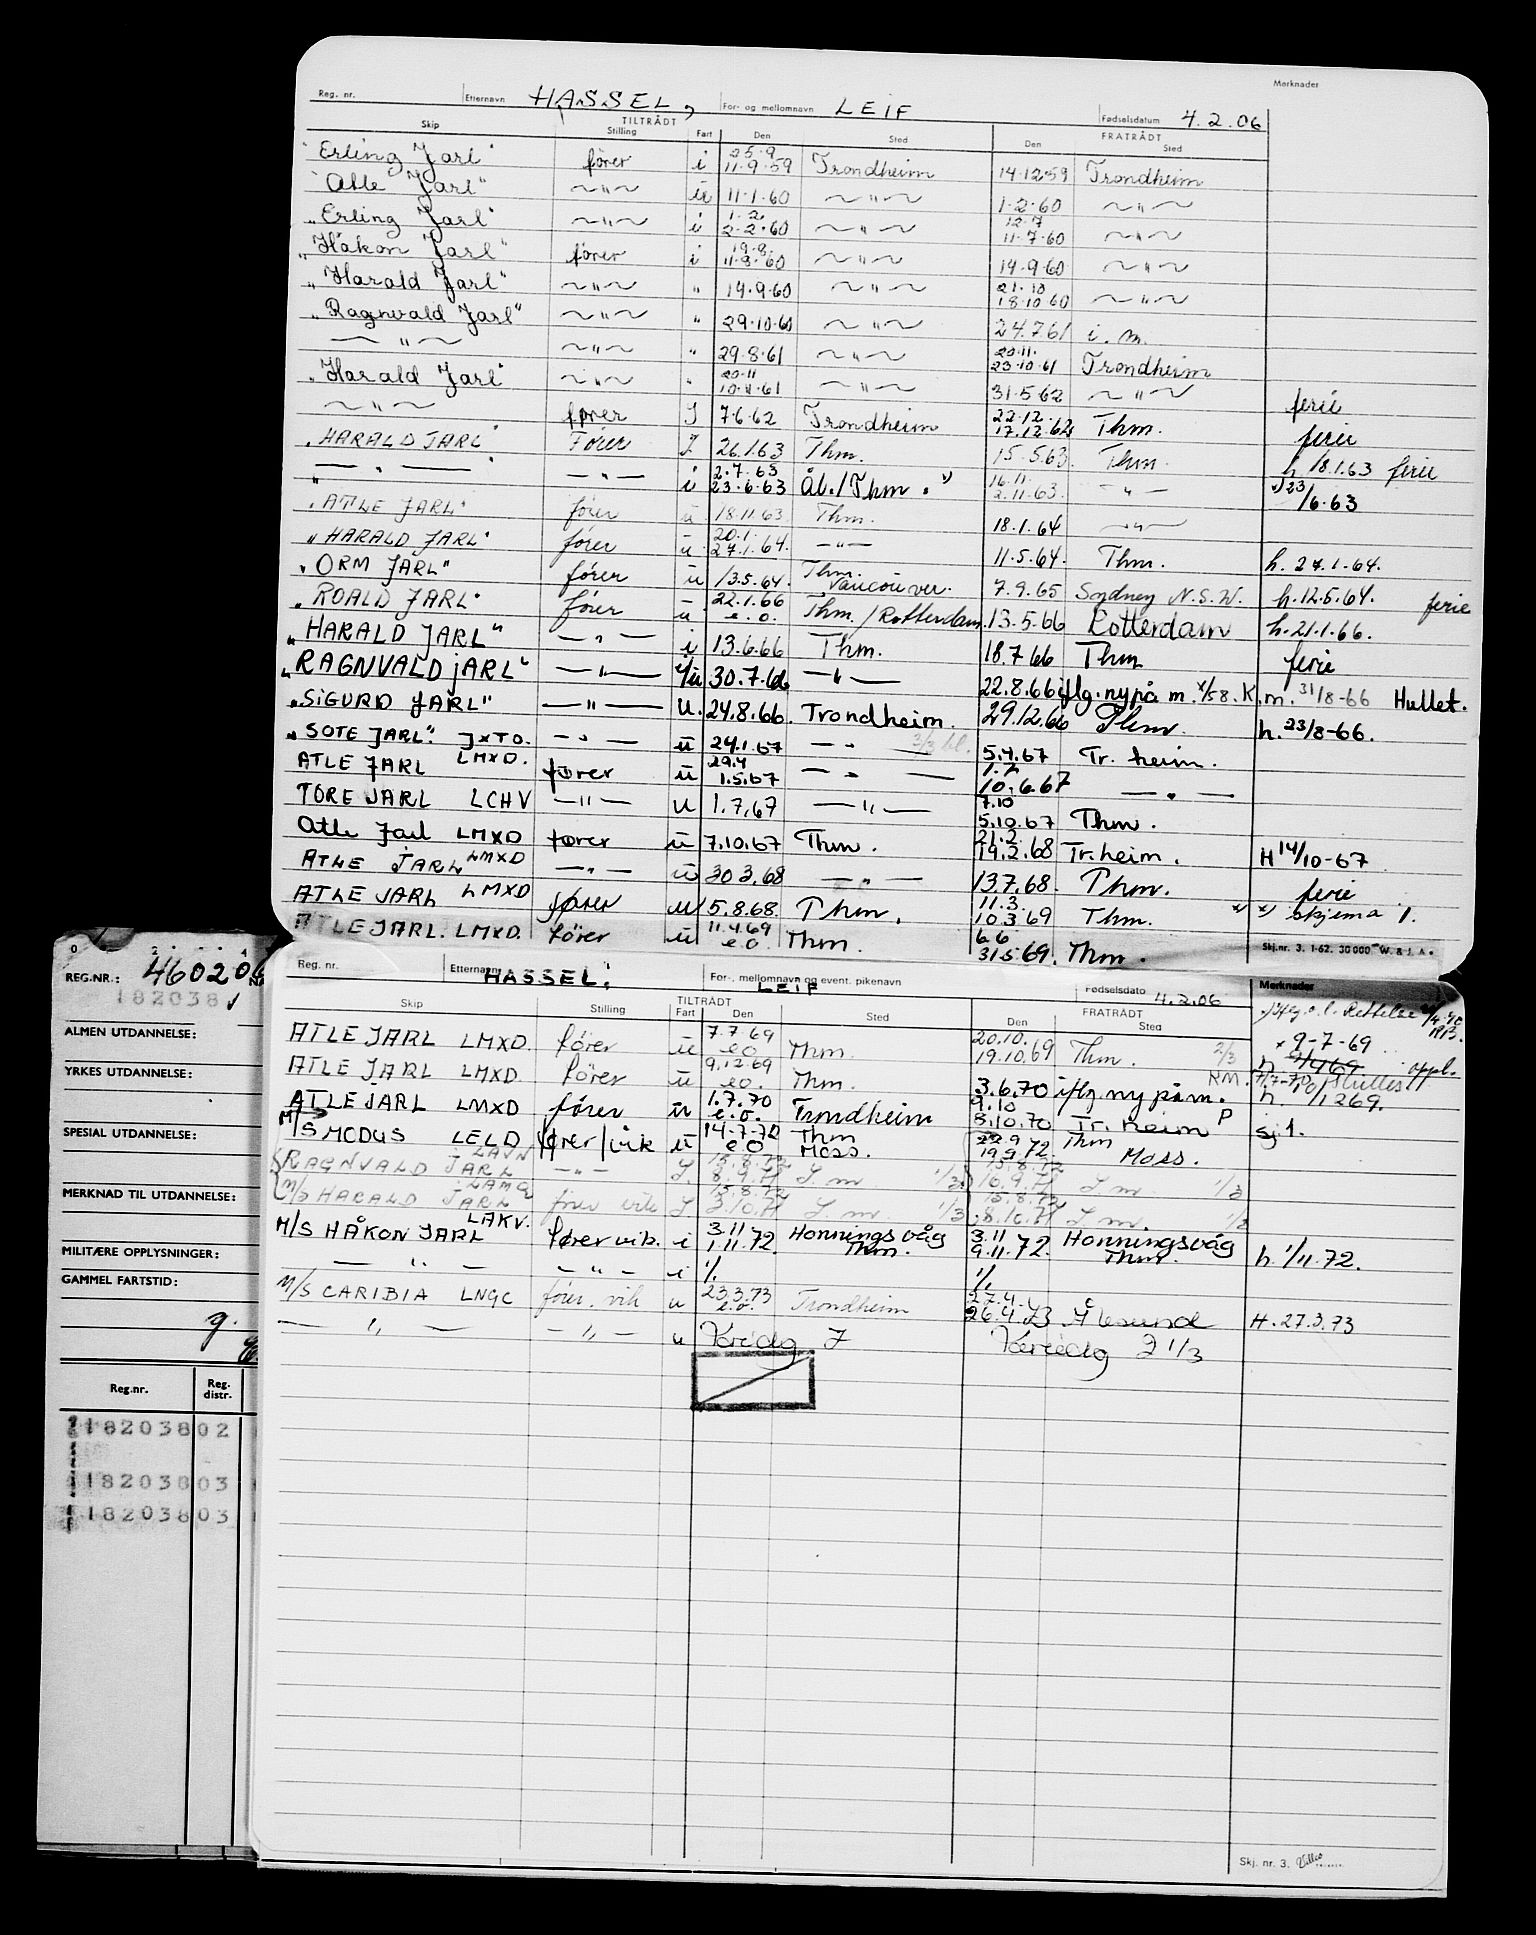 Merknader
Reg. nr. Etternavn HASSEL, For- og mellomnavn LEIF Fødselsdatum 4.2.06
TILTRÅDT FRATRÅDT
Skip Stilling Fart Den Sted Den Sted
"Erling Jarl" fører i 25.9 11.9.59 Trondheim 14.12.59 Trondheim
"Atle Jarl" ~"~ u 11.1.60 ~"~ 1.2.60 ~"~
"Erling Jarl" ~"~ i 1.2. 2.2.60 ~"~ 12.7 11.7.60 ~"~
"Håkon Jarl" fører i 19.8. 11.8.60 ~"~ 14.9.60 ~"~
"Harald Jarl" ~"~ " 14.9.60 ~"~ 21.10 18.10.60 ~"~
"Ragnvald Jarl" ~"~ " 29.10.60 ~"~ 24.7.61 i. m.
— " ~ ~"~ " 29.8.61 ~"~ 20.11. 23.10.61 Trondheim
"Harald Jarl" ~"~ " 20.11 10.11.61 ~"~ 31.5.62 ~"~ ferie
~"~ fører I 7.6.62 Trondheim 22.12. 17.12.62 Thm. ferie
"HARALD JARL" Fører I 26.1.63 Thm. 15.5.63. Thm. h. 18.1.63 ferie
— " — — " — i 2.7.63 23.6.63 Ål./Thm. x) 16.11. 2.11.63. — " — x) 23/6.63
"ATLE JARL" fører u 18.11.63 Thm. 18.1.64 — " —
"HARALD JARL" fører u 20.1. 27.1.64. — " — 11.5.64. Thm. h. 27.1.64.
"ORM JARL" fører u 13.5.64. Thm. Vancouver. 7.9.65 Sydney N.S.W. h. 12.5.64. ferie
"ROALD JARL" fører u 22.1.66 e.o. Thm./Rotterdam. 13.5.66 Rotterdam h. 21.1.66.
"HARALD JARL" — " — i 13.6.66 Thm. 18.7.66 Thm ferie
"RAGNVALD JARL" — " — i/u 30.7.66 — " — 22.8.66 iflg. ny på m. 1/58. K.m. 31/8-66 Hullet.
"SIGURD JARL" — " — u. 24.8.66. Trondheim. 29.12.66 Thm. h. 23/8-66.
"SOTE JARL". JXTO. — " — u 24.1.67 — " — 5.4.67 Tr. heim.
ATLE JARL LMXD. fører u 29.4 1.5.67 — " — 1.7 10.6.67 — " —
TORE JARL LCHV — " — u 1.7.67 — " — 7.10 5.10.67 Thm.
Atle Jarl LMXD fører u 7.10.67 Thm. 21.2. 19.2.68 Tr.heim. H 14/10-67
ATLE JARL LMXD — " — u 30.3.68 — " — 13.7.68. Thm. ferie
ATLE JARL LMXD fører u 5.8.68. Thm. 11.3. 10.3.69 Thm. x) x) skjema 1.
ATLE JARL. LMXD. fører u 11.4.69 e.o. Thm. 6.6 31.5.69. Thm. Skj.nr. 3. 1-62. 30 000 W. & J. A.
REG.NR.: 460206
182038
ALMEN UTDANNELSE:
YRKES UTDANNELSE:
SPESIAL UTDANNELSE:
MERKNAD TIL UTDANNELSE:
MILITÆRE OPPLYSNINGER:
GAMMEL FARTSTID:
g.
Reg.nr. Reg. distr.
18203802
18203803
18203803
Reg. nr. Etternavn HASSEL: For-, mellomnavn og event. pikenavn LEIF Fødselsdato 4.2.06 Merknader
TILTRÅDT FRATRÅDT
Skip Stilling Fart Den Sted Den Sted
ATLE JARL LMXD. fører u 7.7.69 e.o Thm. 20.10. 19.10.69 Thm. 2/3 x 9-7-69
ATLE JARL LMXD. fører u 9.12.69 e.o. Thm. 3.6.70 iflg. ny på m. h. 1/1269.
ATLE JARL LMXD fører u 1.7.70 e.o. Trondheim 9.10 8.10.70 Tr. heim P sj 1.
M/S MODUS LELD fører/vik u 14.7.72 e.o Thm Moss. 22.9 19.9.72 Thm Moss.
RAGNVALD JARL LAJN — " — I. 15.8.72 8.9.71 I. m 1/3 15.8.72 10.9.71 I m 1/3
M/S HARALD JARL LAMQ fører vik I 15.8.72 3.10.71 I. m. 1/3 15.8.72 8.10.71 I m. 1/3
M/S HÅKON JARL LAKV. fører vik. i 3.11 1.11.72. Honningsvåg Thm. 3.11 9.11.72. Honningsvåg Thm. h. 1/11.72.
— " — — " — i % %
M/S CARIBIA LNGC fører. vik u 23.3.73 e.o. Trondheim 27.4. 26.4.73 Ålesund H. 27.3.73
— " — — " — u Varidg I Varidg I 1/3
Skj. nr. 3.